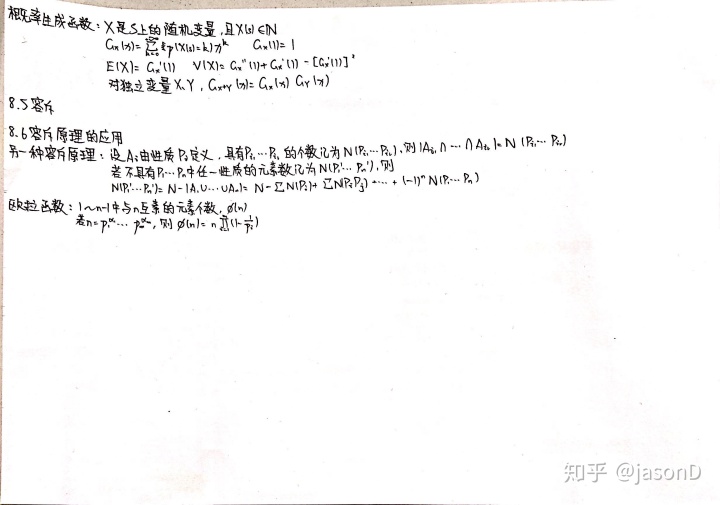 概率生成函数：X是S上的随机变量，且X(s)∈N
Gx(x)=∑p(X(s)=k)x^k Gx(1)=1
E(X)=Gx'(1) V(X)=Gx''(1)+Gx'(1)-[Gx'(1)]²
对独立变量X,Y, Gx+Y(x)=Gx(x) GY(x)
8.5容斥
8.6容斥原理的应用
另一种容斥原理：设Ai由性质Pi定义，具有Pi₁…Piₖ的个数记为N(Pi₁…Piₖ)，则|Ai₁∩…∩Aiₖ|=N(Pi₁…Piₖ)
若不具有P₁…Pn中任一性质的元素数记为N(P₁'…Pn')，则
N(P₁'…Pn')=N-|A₁∪…∪An|=N-∑N(Pi)+∑N(PiPj)+…+(-1)ⁿN(P₁…Pn)
欧拉函数：1~n-1中与n互素的元素个数，ø(n)
若n=p₁^α₁…pm^αm，则ø(n)=n∏(1-1/pi)
知乎 @jasonD